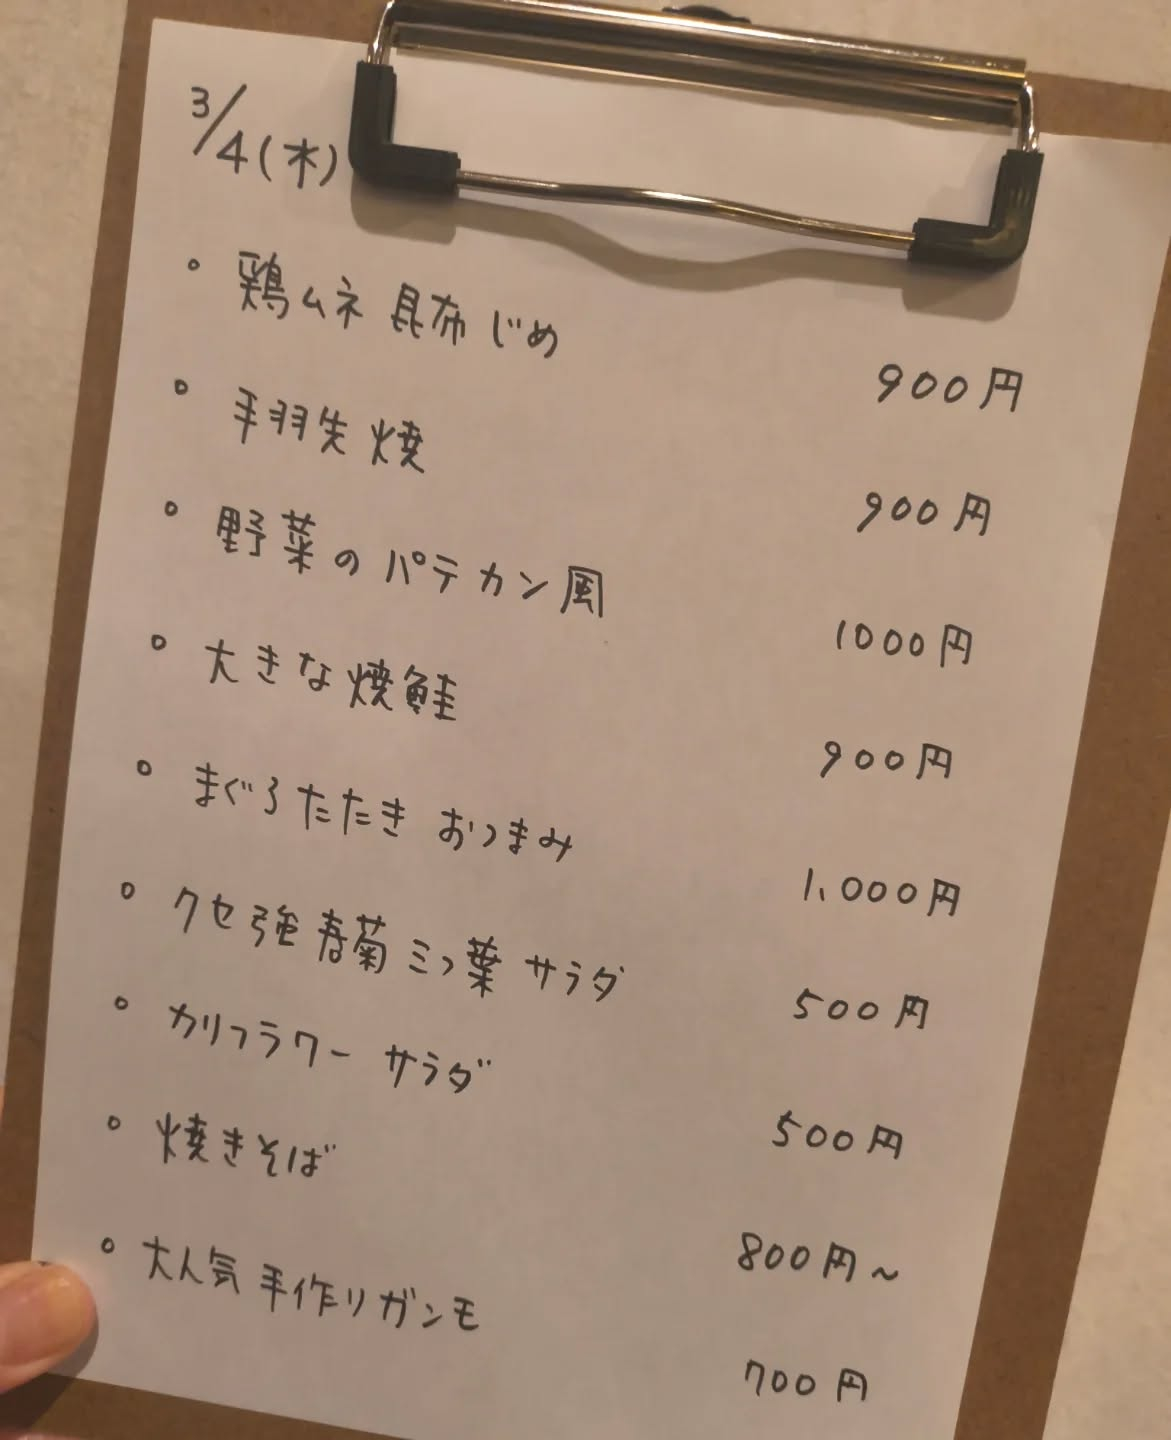 3/4(木)
。鶏ムネ 昆布じめ 900円
。手羽先焼 900円
。野菜のパテカン風 1000円
。大きな焼鮭 900円
。まぐろたたき おつまみ 1,000円
。クセ強 春菊 三つ葉 サラダ 500円
。カリフラワー サラダ 500円
。焼きそば 800円~
。大人気 手作りガンモ 700円